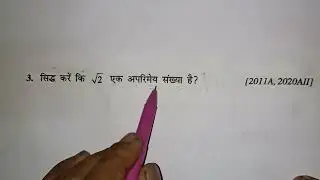 3. सिद्ध करें कि √2 एक अपरिमेय संख्या है? [2011A, 2020AII]